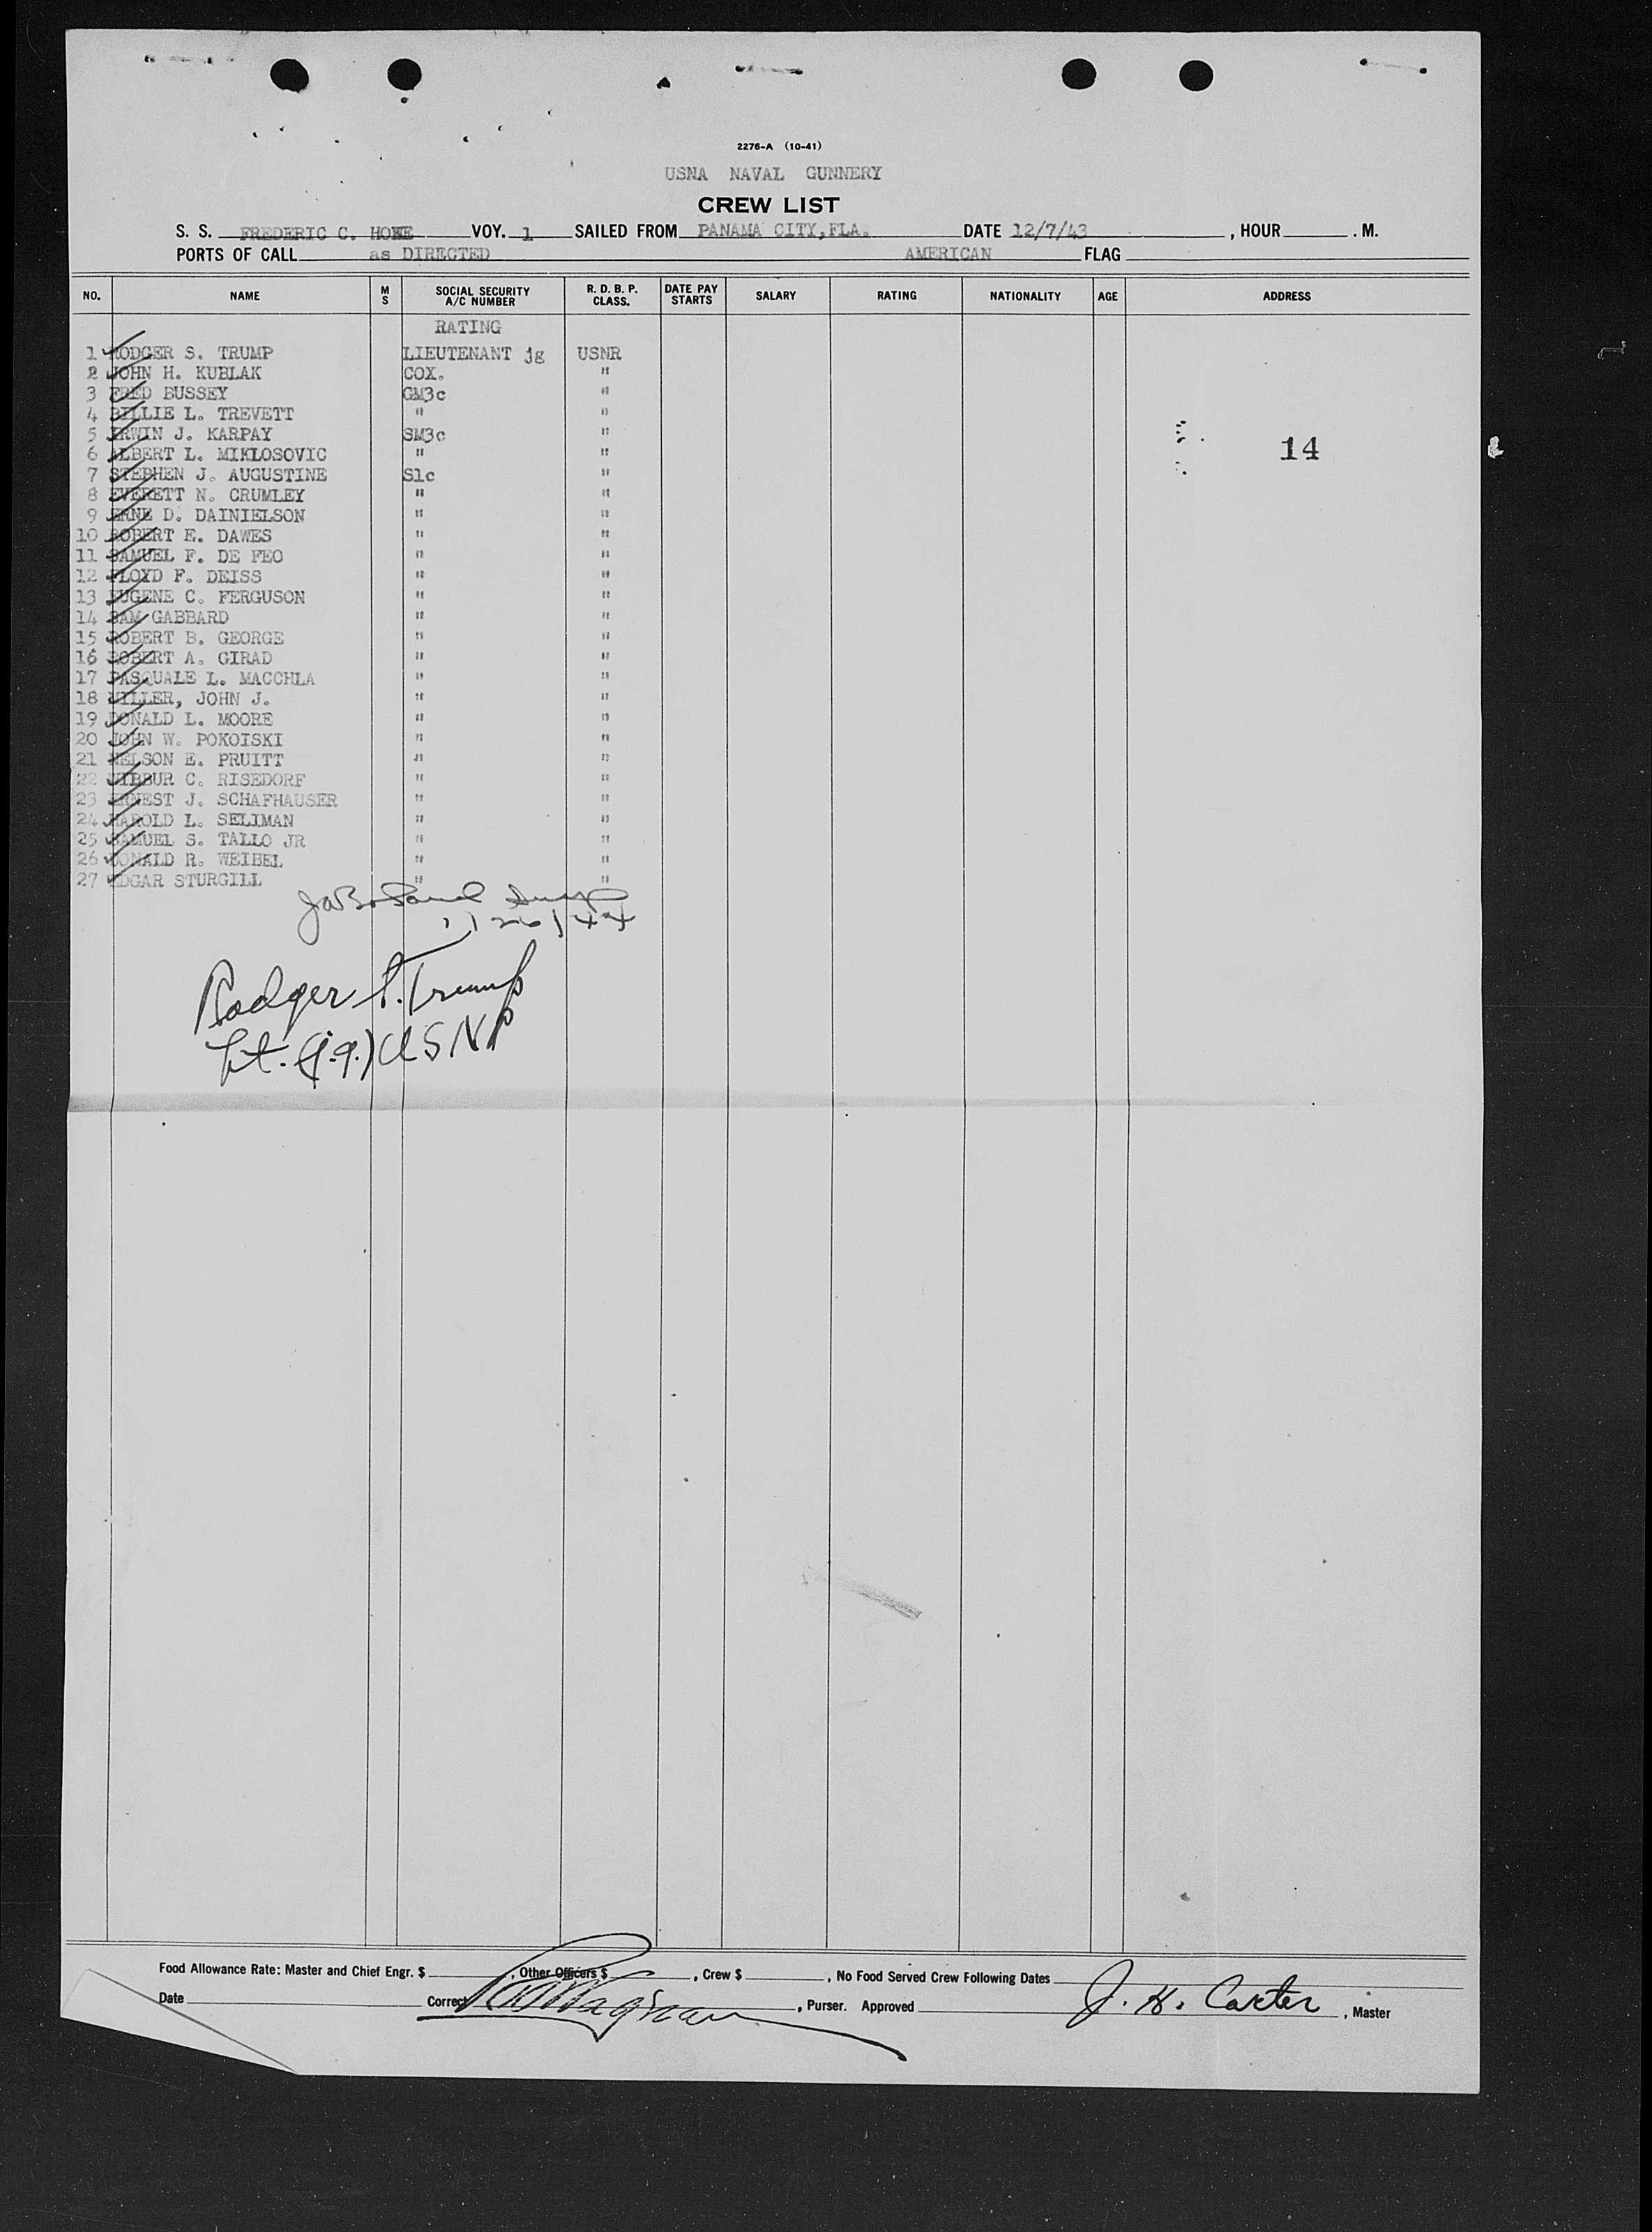 2276-A (10-41)
USNA NAVAL GUNNERY
CREW LIST
S. S. FREDERIC C. HOWE VOY. 1 SAILED FROM PANAMA CITY, FLA. DATE 12/7/43 , HOUR . M.
PORTS OF CALL as DIRECTED AMERICAN FLAG
NO. NAME M S SOCIAL SECURITY A/C NUMBER R. D. B. P. CLASS. DATE PAY STARTS SALARY RATING NATIONALITY AGE ADDRESS
RATING
1 RODGER S. TRUMP LIEUTENANT jg USNR
2 JOHN H. KUBLAK COX. "
3 FRED BUSSEY GM3c "
4 BILLIE L. TREVETT " "
5 IRWIN J. KARPAY SM3c "
14
6 ALBERT L. MIKLOSOVIC " "
7 STEPHEN J. AUGUSTINE S1c "
8 EVERETT N. CRUMLEY " "
9 ERNE D. DAINIELSON " "
10 ROBERT E. DAWES " "
11 SAMUEL F. DE FEO " "
12 FLOYD F. DEISS " "
13 EUGENE C. FERGUSON " "
14 SAM GABBARD " "
15 ROBERT B. GEORGE " "
16 ROBERT A. GIRAD " "
17 PASQUALE L. MACCHLA " "
18 MILLER, JOHN J. " "
19 DONALD L. MOORE " "
20 JOHN W. POKOISKI " "
21 NELSON E. PRUITT " "
22 WILBUR C. RISEDORF " "
23 ERNEST J. SCHAFHAUSER " "
24 HAROLD L. SELIMAN " "
25 SAMUEL S. TALLO JR " "
26 DONALD R. WEIBEL " "
27 EDGAR STURGILL " "
1/26/44
Rodger S. Trump
Lt. (j.g.) USNR
Food Allowance Rate: Master and Chief Engr. $ , Other Officers $ , Crew $ , No Food Served Crew Following Dates
Date Correct , Purser. Approved J. H. Carter , Master